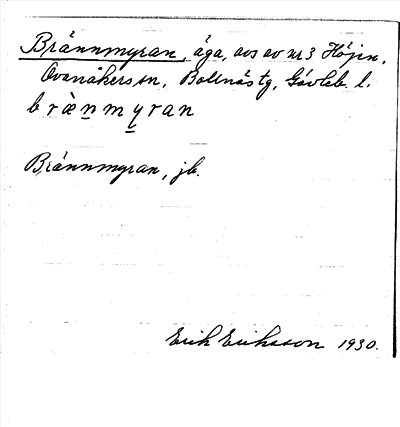 Brännmyran, äga, avs av nr 3 Höjen,
Ovanåkers sn, Bollnäs tg, Gävleb. l.
brænmyran
Brännmyran, jb.
Erik Eriksson 1930.